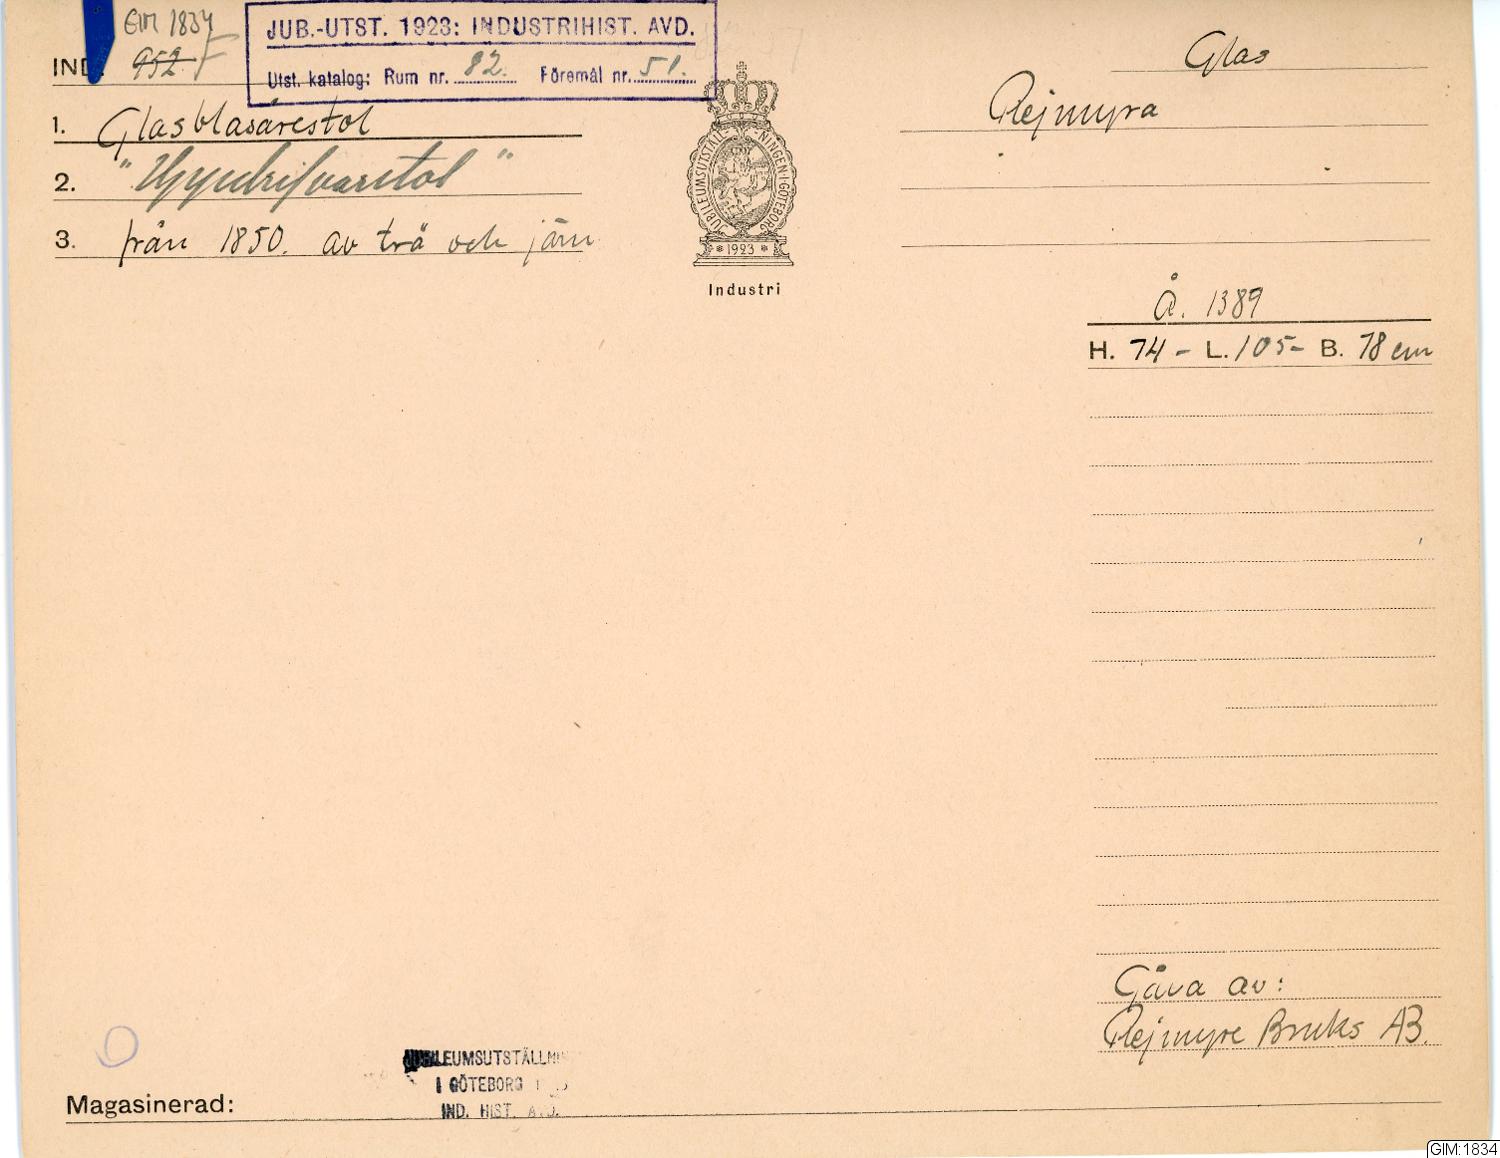 GIM 1834
IND. 952 F
JUB.-UTST. 1923: INDUSTRIHIST. AVD.
Utst. katalog: Rum nr. 82. Föremål nr. 51.
Glas
1. Glasblasårestol
Rejmyra
2.
3. från 1850. av trä och järn
JUBILEUMSUTSTÄLLNINGEN·I·GÖTEBORG
* 1923 *
Industri
Å. 1389
H. 74 - L. 105 - B. 78 cm
Gåva av:
Rejmyre Bruks AB.
JUBILEUMSUTSTÄLLNIN
I GÖTEBORG
IND. HIST. AVD.
Magasinerad:
GIM:1834